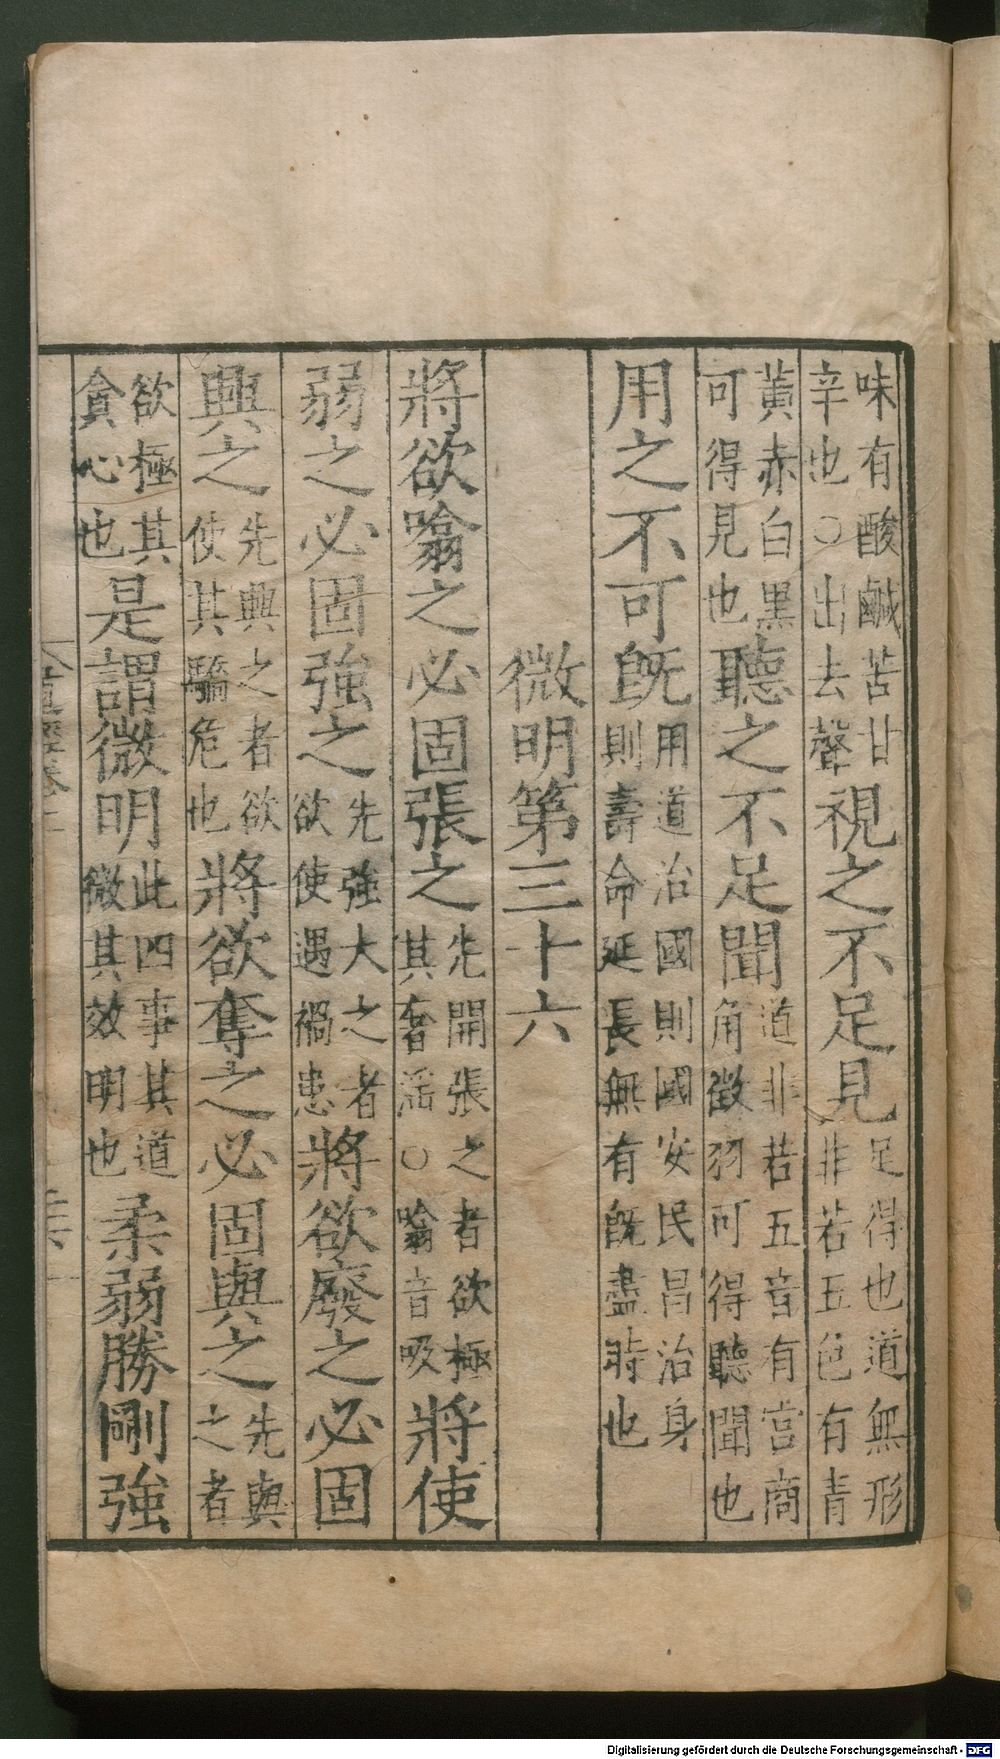 味有酸鹹苦甘辛也○出去聲視之不足見足得也道無形非若五色有青
黃赤白黑可得見也聽之不足聞道非若五音有宮商角徵羽可得聽聞也
用之不可旣用道治國則國安民昌治身則壽命延長無有旣盡時也
微明第三十六
將欲噏之必固張之先開張之者欲極其奢淫○噏音吸將使
弱之必固強之先強大之者欲使遇禍患將欲廢之必固
興之先興之者欲使其驕危也將欲奪之必固與之先與之者
欲極其貪心也是謂微明此四事其道微其效明也柔弱勝剛強
Digitalisierung gefördert durch die Deutsche Forschungsgemeinschaft - DFG